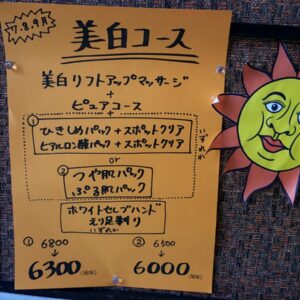 7.8.9月
美白コース
美白リフトアップマッサージ
+
ピュアコース
+
①
ひきしめパック+スポットクリア
ヒアルロン酸パック+スポットクリア
いずれか
or
②
つや肌パック
ぷる肌パック
ホワイトセレブハンド
えり足剃り
いずれか
① 6800
↓
6300(税抜)
② 6500
↓
6000(税抜)